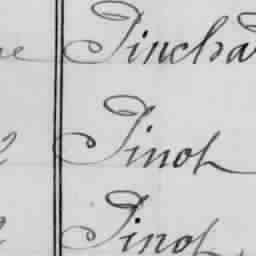 Pincha
Pinot
Pinot